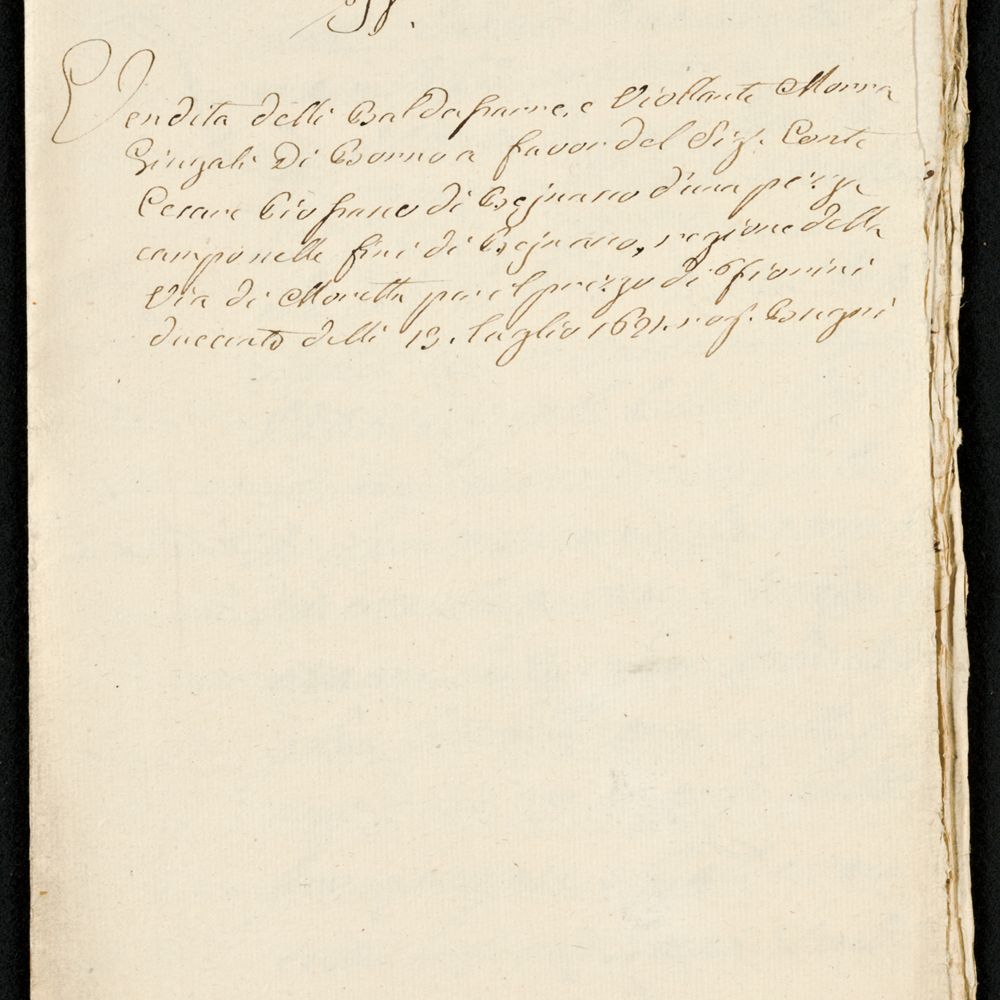 Vendita delli Baldessarre, e Viollante Morra
Giugali Di Bornoa favor del Sig. Conte
Cesare Giofrano di Bejnasco d'una pezza
campo nelle fini di Bejnasco, regione della
Via di Moretta per il prezzo di fiorini
ducento delli 13. luglio 1621. rog.